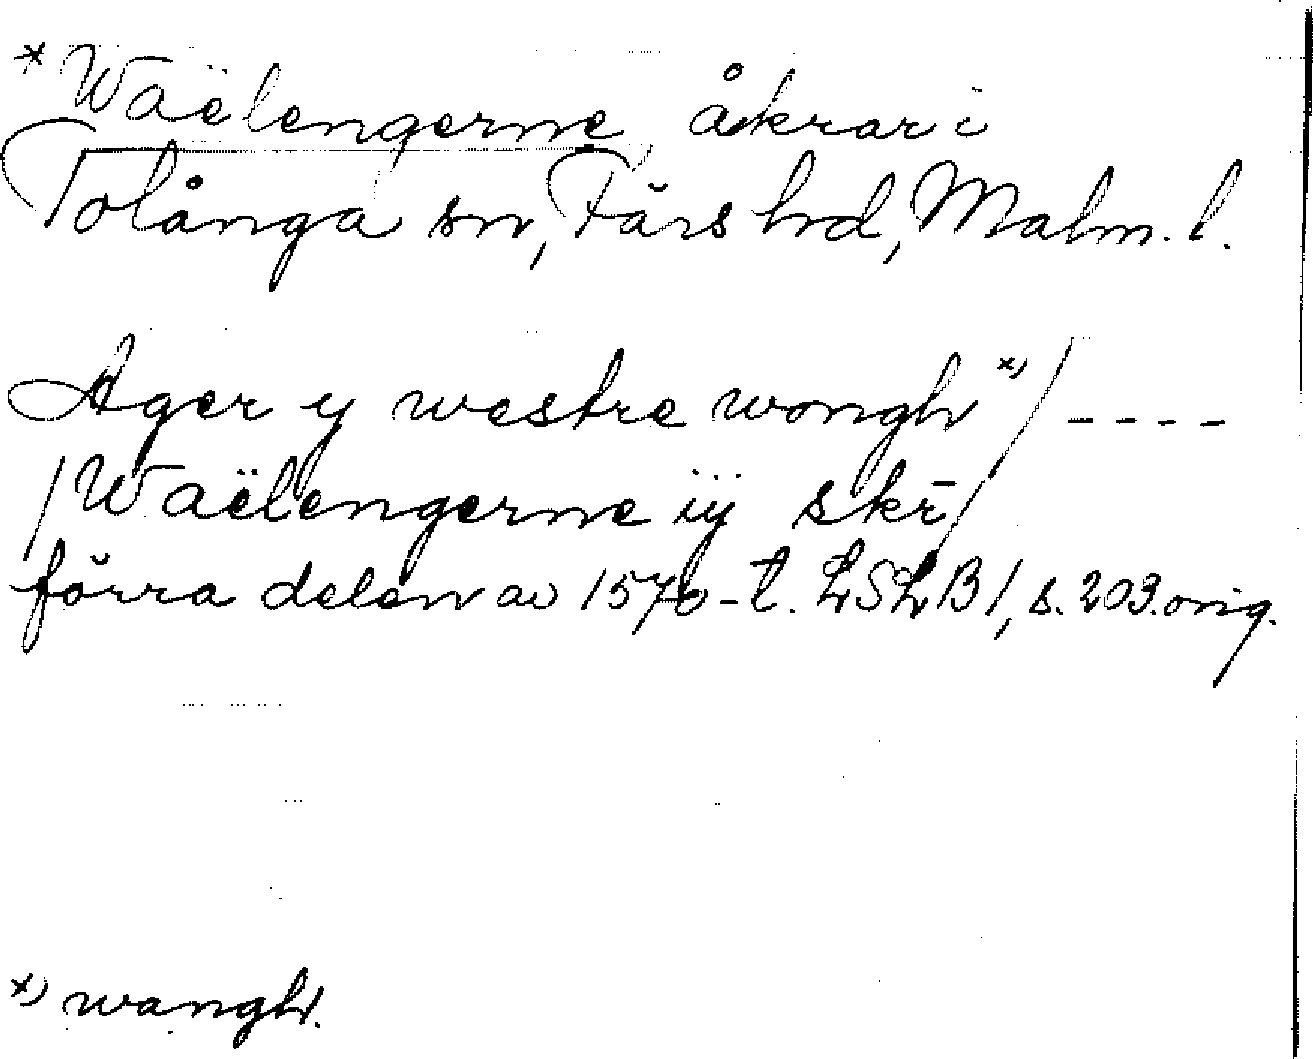 *Waëlengerne, åkrar i
Tolånga sn, Färs hd, Malm. l.
Ager y westre wongh *) / - - - -
/ Waëlengerne iÿ skr̄ /
förra delen av 1570-t. LSLB 1, s. 203. orig.
*) wangh.